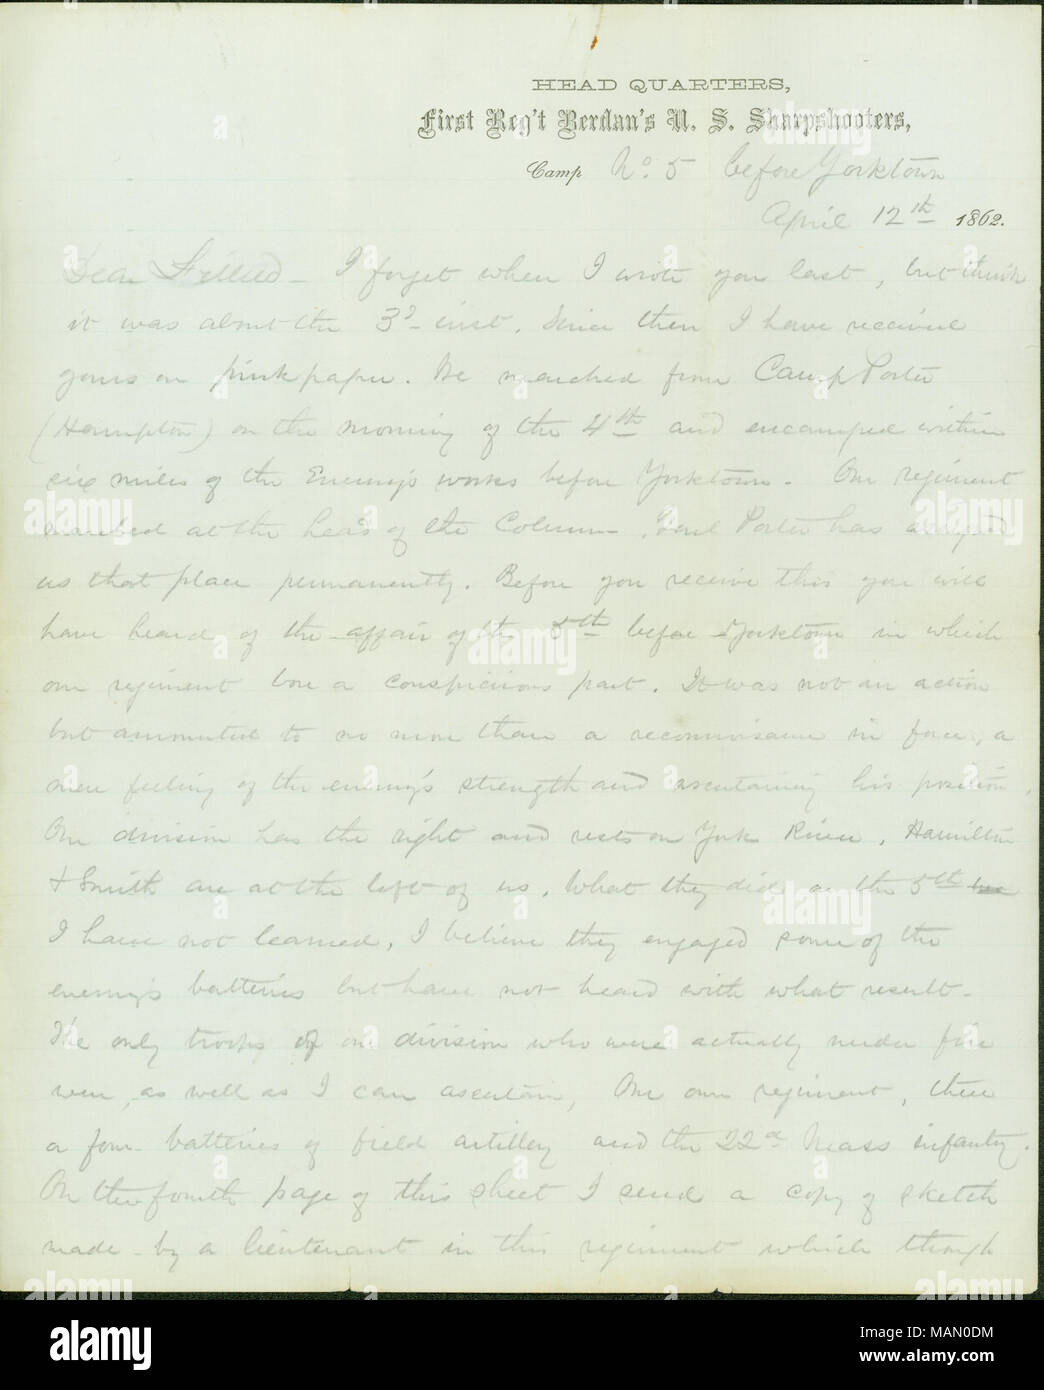 HEAD QUARTERS,
First Reg't Berdan's U. S. Sharpshooters,
Camp No. 5 before Yorktown
April 12th 1862.
Dear Friend - I forget when I wrote you last, but think
it was about the 3d inst. Since then I have received
yours on pink paper. We marched from Camp Porter
(Hampton) on the morning of the 4th and encamped within
six miles of the Enemy's works before Yorktown. Our regiment
marched at the head of the Column. Genl Porter has assigned
us that place permanently. Before you receive this you will
have heard of the affair of the 5th before Yorktown in which
our regiment bore a conspicuous part. It was not an action
but amounted to no more than a reconnoisance in force, a
mere feeling of the enemy's strength and ascertaining his position.
Our division has the right and rests on York River. Hamilton
& Smith are at the left of us. What they did on the 5th
I have not learned. I believe they engaged some of the
enemy's batteries but have not heard with what result.
The only troops of our division who were actually under fire
were, as well as I can ascertain, Our own regiment, three
a four batteries of field artillery and the 22d Mass infantry.
On the fourth page of this sheet I send a copy of sketch
made by a lieutenant in this regiment which though
alamy
Image ID: MAN0DM
www.alamy.com